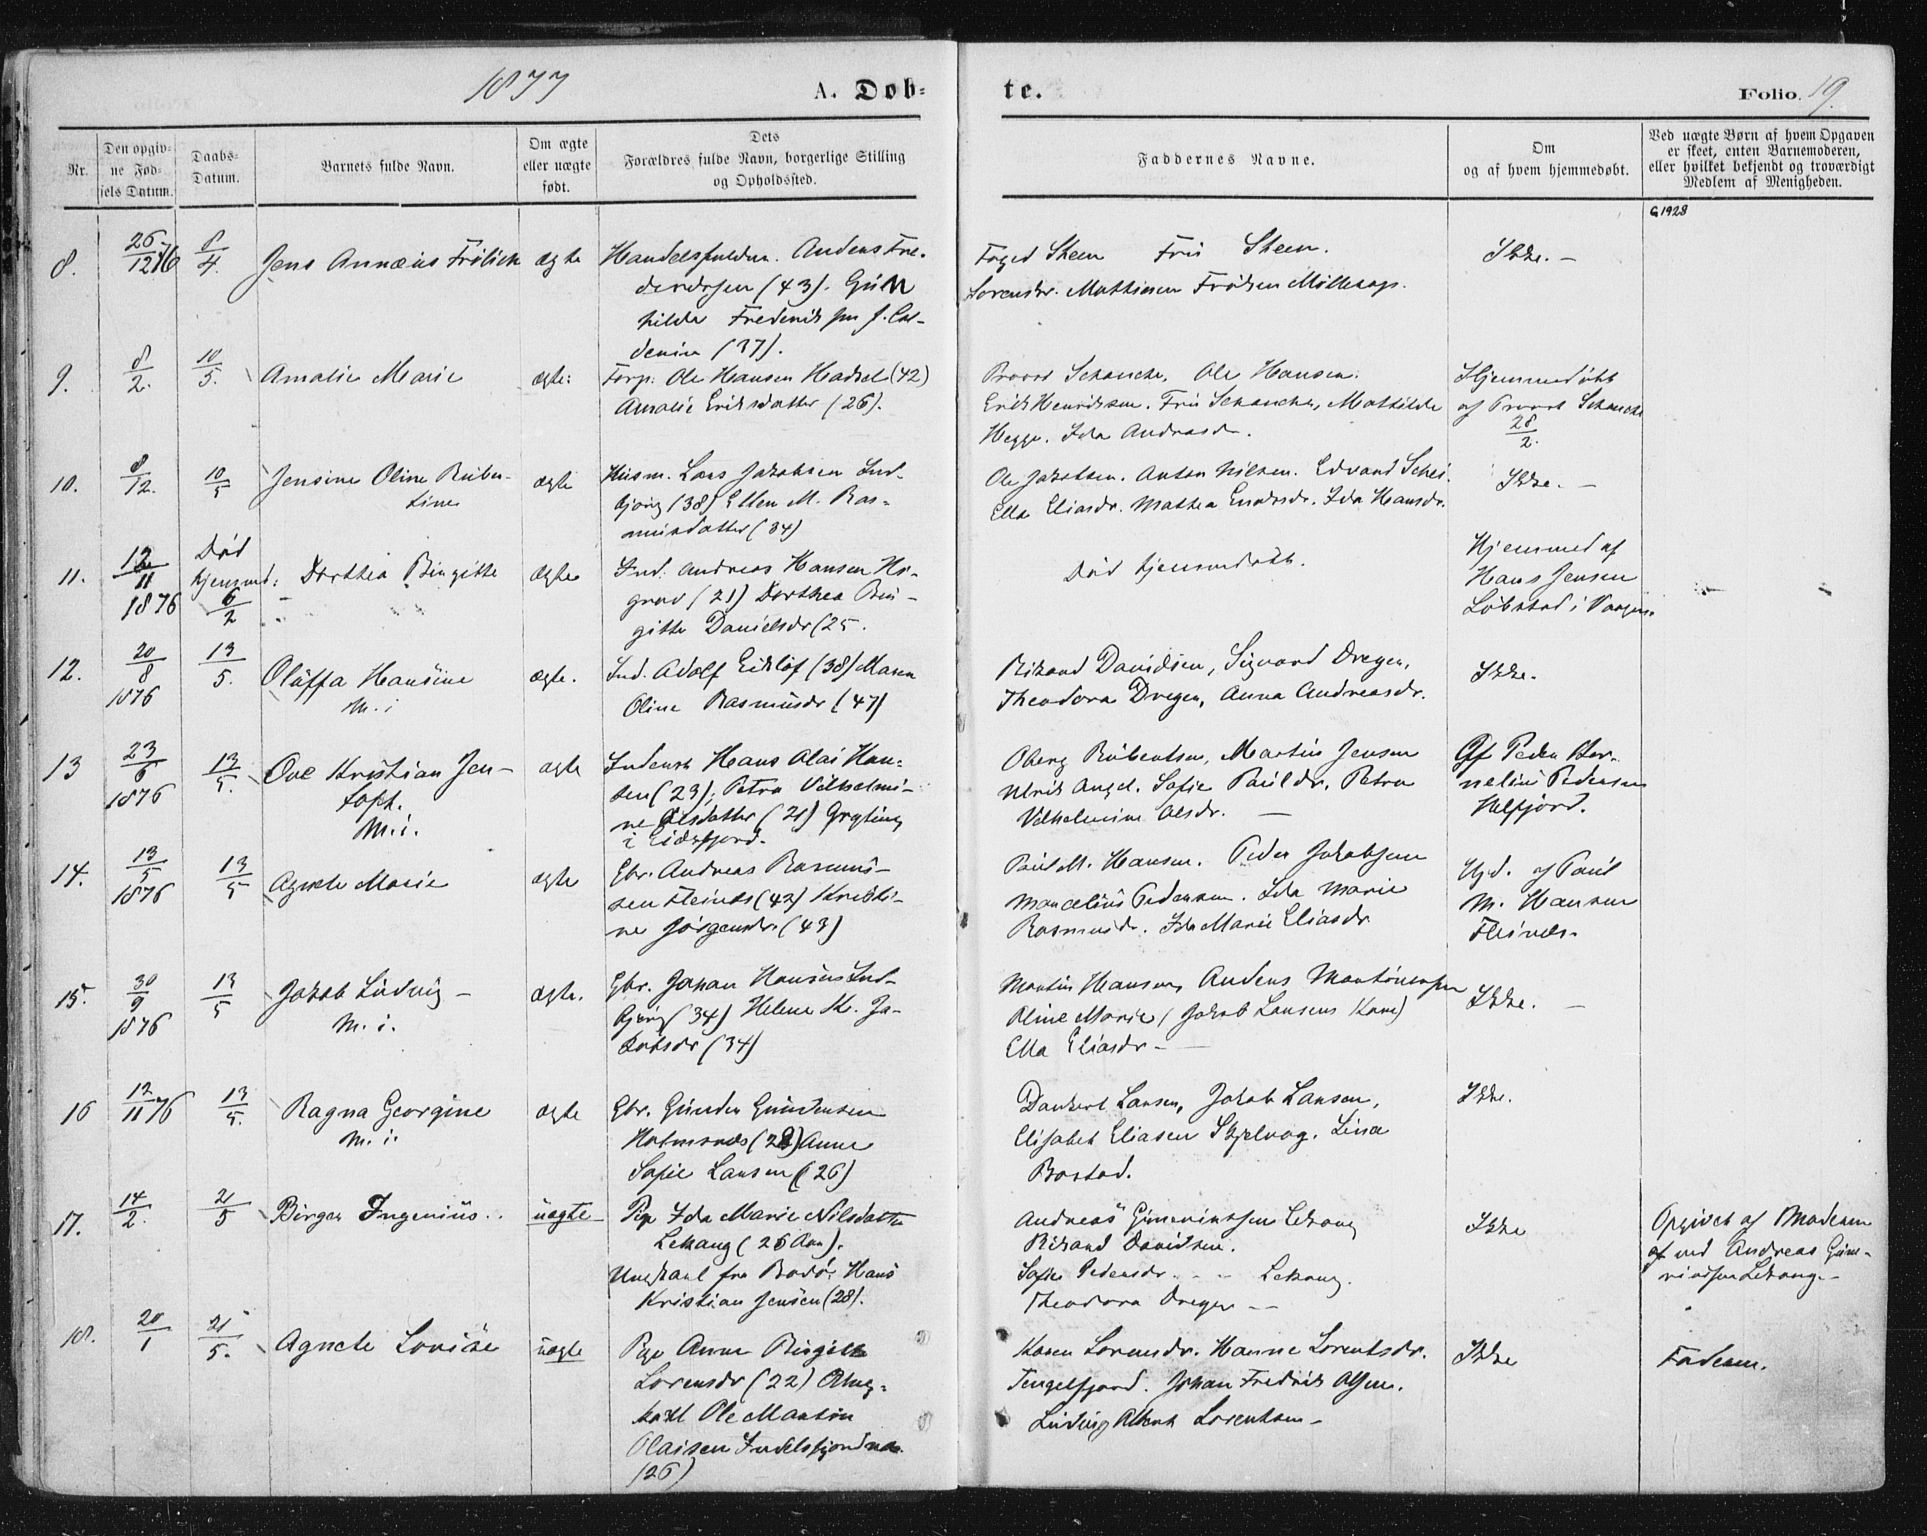 1877
A. Døb-
te.
Folio. 19.
Nr.
Den opgiv-
ne Fød-
sels Datum.
Daabs-
Datum.
Barnets fulde Navn.
Om ægte
eller uægte
født.
Dets
Forældres fulde Navn, borgerlige Stilling
og Opholdssted.
Faddernes Navne.
Om
og af hvem hjemmedøbt.
Ved uægte Børn af hvem Opgaven
er skeet, enten Barnemoderen,
eller hvilket bekjendt og troværdigt
Medlem af Menigheden.
G 1928
8.
26/12 76
8/4.
Jens Annæus Frölich
ægte
Anders Fre-
(43). Gun
hilda Frederik
(37).
Foged Steen Fru Steen.
Mathisen Fröken
Ikke. –
9.
8/2.
10/5.
Amalie Marie
ægte.
Forp. Ole Hansen Hadsel (42)
Amalie Eriksdatter (26).
Provst Schanche, Ole Hansen.
Erik Henriksen. Fru Schanche, Mathilde
Hegge. Ida
Hjemmedöbt
af Provst Schanche
28/2.
10.
8/12.
10/5
Jensine Oline Ruber-
tine
ægte
Husm. Lars Jakobsen Ind-
björg (38) Ellen M. Ras-
musdatter (34)
Ole Jakobsen. Anton Nilsen. Edvard
Ella Eliasdr. Mathea Ida Hansdr.
Ikke. –
11.
12/11
1876
Död
hjemmed:
6/2
Dorthea Birgitte
ægte
Ind. Andreas Hansen Ho-
grav (21) Dorthea Bir-
gitte Danielsdr (25.
Död hjemmedöbt.
Hjemmed af
Hans Jensen
12.
20/8
1876
13/5.
Oluffa Hansine
M. i
ægte.
Ind. Adolf Eiklöf (38) Maren
Oline Rasmusdr (47)
Rikard Davidsen, Sigvard Dreyer,
Theodora Dreyer, Anna Andreasdr.
Ikke.
13
23/6
1876
13/5.
Ove Kristian Jen-
toft.
M. i.
ægte
Inderst Hans Olai Han-
sen (23), Petra Vilhelmi-
ne Olsdatter (21) Grytting
i Eidsfjord.
Oberg Rubertsen, Martin Jensen
Ulrik Angel. Sofie Paulsdr. Petra
Vilhelmine Olsdr. –
Af Peder Kor-
nelius Pedersen
14.
13/5
1876
13/5
Agnete Marie
ægte
Gbr. Andreas Rasmus-
sen Fleines (42) Kristi-
ne Jörgensdr. (43)
Paul M. Hansen. Peder Jakobsen
Marcelius Pedersen. Ida Marie
Rasmusdr. Ida Marie Eliasdr
Hjd. af Paul
M. Hansen
Fleines.
15.
30/9
1876
13/5
Jakob Ludvig –
M. i.
ægte.
Gbr. Johan Hansen Ind-
björg (34) Helene K. Ja-
kobsdr (34)
Martin Hansen, Anders
Oline Marie (Jakob Larsens Kone)
Ella Eliasdr –
Ikke. –
16
12/11 76
13/5.
Ragna Georgine
M. i.
ægte
Gbr. Gunder Gundersen
Holmsnes (28) Anne
Sofie Larsen (26)
Dankert Larsen, Jakob Larsen,
Elisabet Eliasen Skjelvog. Lina
Bostad.
Ikke.
17.
14/2.
21/5
Birger Ingenius.
uægte
Pige Ida Marie Nilsdatter
Lekang (26 Aar).
Ungkarl fra Bodö, Hans
Kristian Jensen (28).
Andreas Lekang
Rikard Davidsen.
Sofie Pedersdr. – – Lekang.
Theodora Dreyer – –
Ikke
Opgivet af Moderen
ved Andreas
Lekang –
18.
20/1
21/5.
Agnete Lovise
uægte
Pige Anne Birgitte
Lorensdr (22) Ung-
karl Ole Martin
Olaisen
(26)
Karen Lorensdr. Hanne Lorentsdr.
Tengelfjord. Johan Fredrik Olsen.
Ludvig Albert Lorentsen –
Ikke
Faderen.